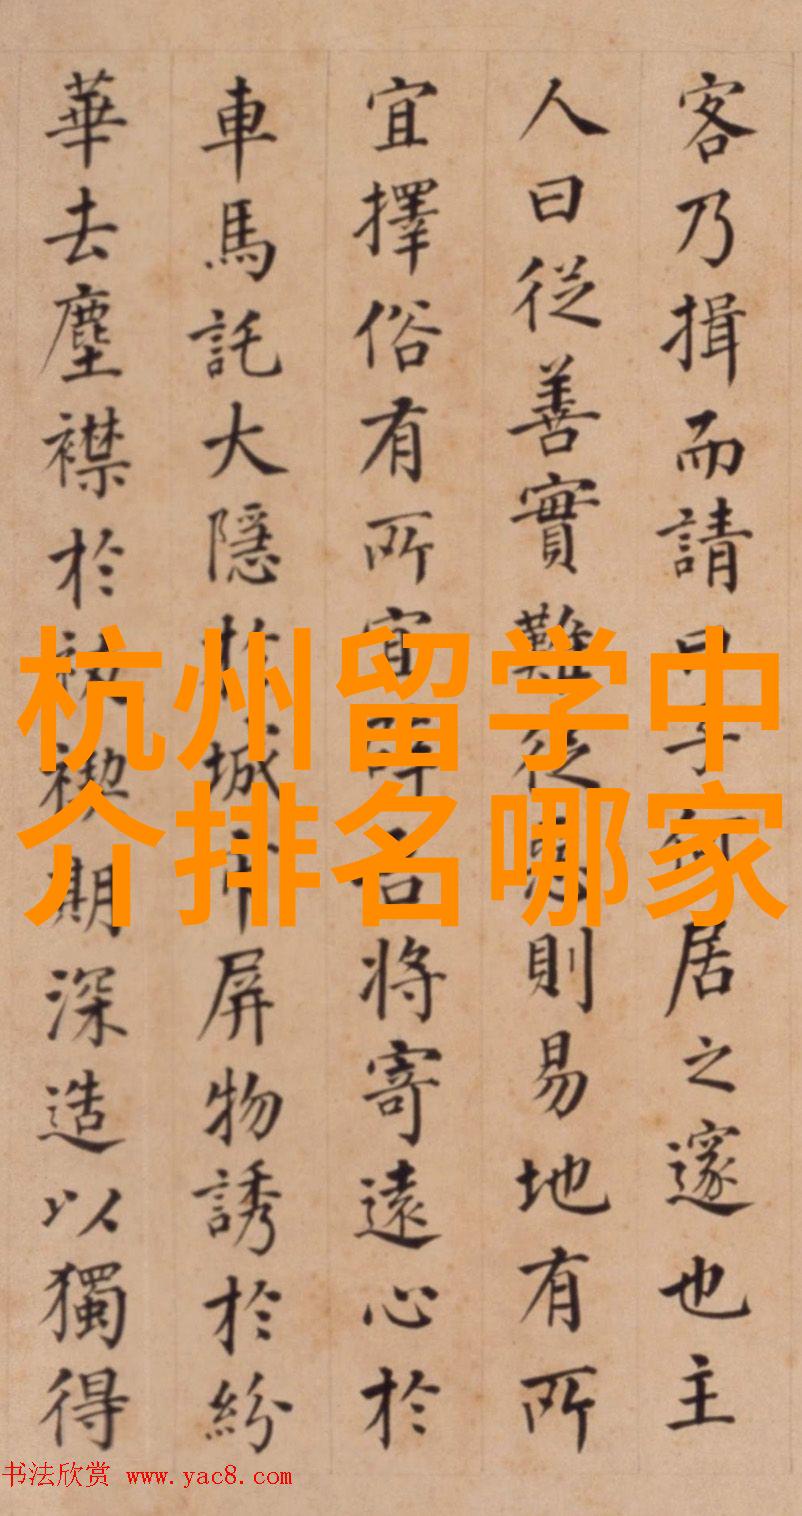 客乃揖而請曰子何居之邃也主
人曰從善實難從惡則易地有所
宜擇俗有所宜將寄遠心於
車馬託大隱於城市屏物誘於紛
華去塵襟於禊期深造以獨得
杭州留学中
介排名哪家
书法欣赏 www.yac8.com